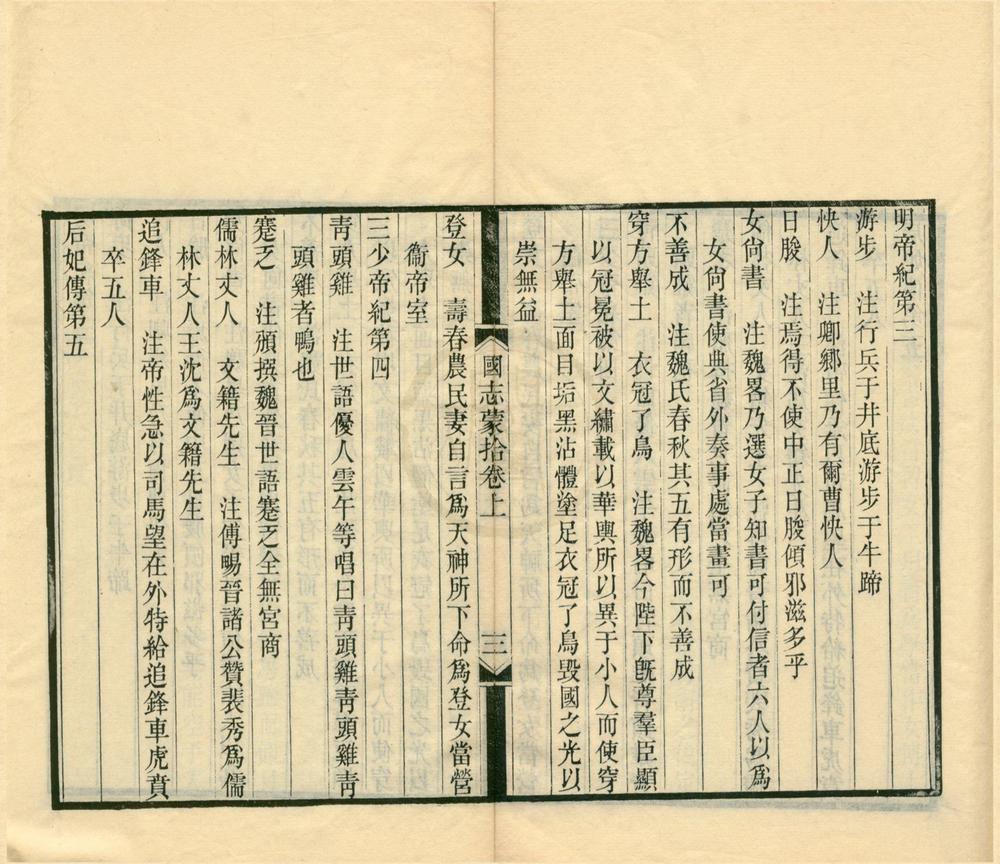 明帝紀第三
游步　注行兵于井底游步于牛蹄
快人　注鄉鄉里乃有爾曹快人
日朘　注焉得不使中正日朘傾邪滋多乎
女尙書　注魏畧乃選女子知書可付信者六人以爲
女尙書使典省外奏事處當畫可
不善成　注魏氏春秋其五有形而不善成
穿方舉土　衣冠了鳥　注魏畧今陛下旣尊羣臣顯
以冠冕被以文繡載以華輿所以異于小人而使穿
方舉土面目垢黑沾體塗足衣冠了鳥毀國之光以
崇無益
國志蒙拾卷上
三
登女　壽春農民妻自言爲天神所下命爲登女當營
衞帝室
三少帝紀第四
靑頭雞　注世語優人雲午等唱曰靑頭雞靑頭雞靑
頭雞者鴨也
蹇乏　注頒撰魏晉世語蹇乏全無宮商
儒林丈人　文籍先生　注傅暢晉諸公贊裴秀爲儒
林丈人王沈爲文籍先生
追鋒車　注帝性急以司馬望在外特給追鋒車虎賁
卒五人
后妃傳第五